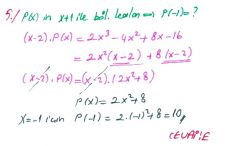 5./ P(x) in x+1 ile böl. kalan ⇒ P(-1)=?
(x-2).P(x) = 2x³-4x²+8x-16
= 2x²(x-2)+8(x-2)
(x-2).P(x)=(x-2).(2x²+8)
P(x)=2x²+8
x=-1 için P(-1)=2.(-1)²+8=10,
CEVAP: E